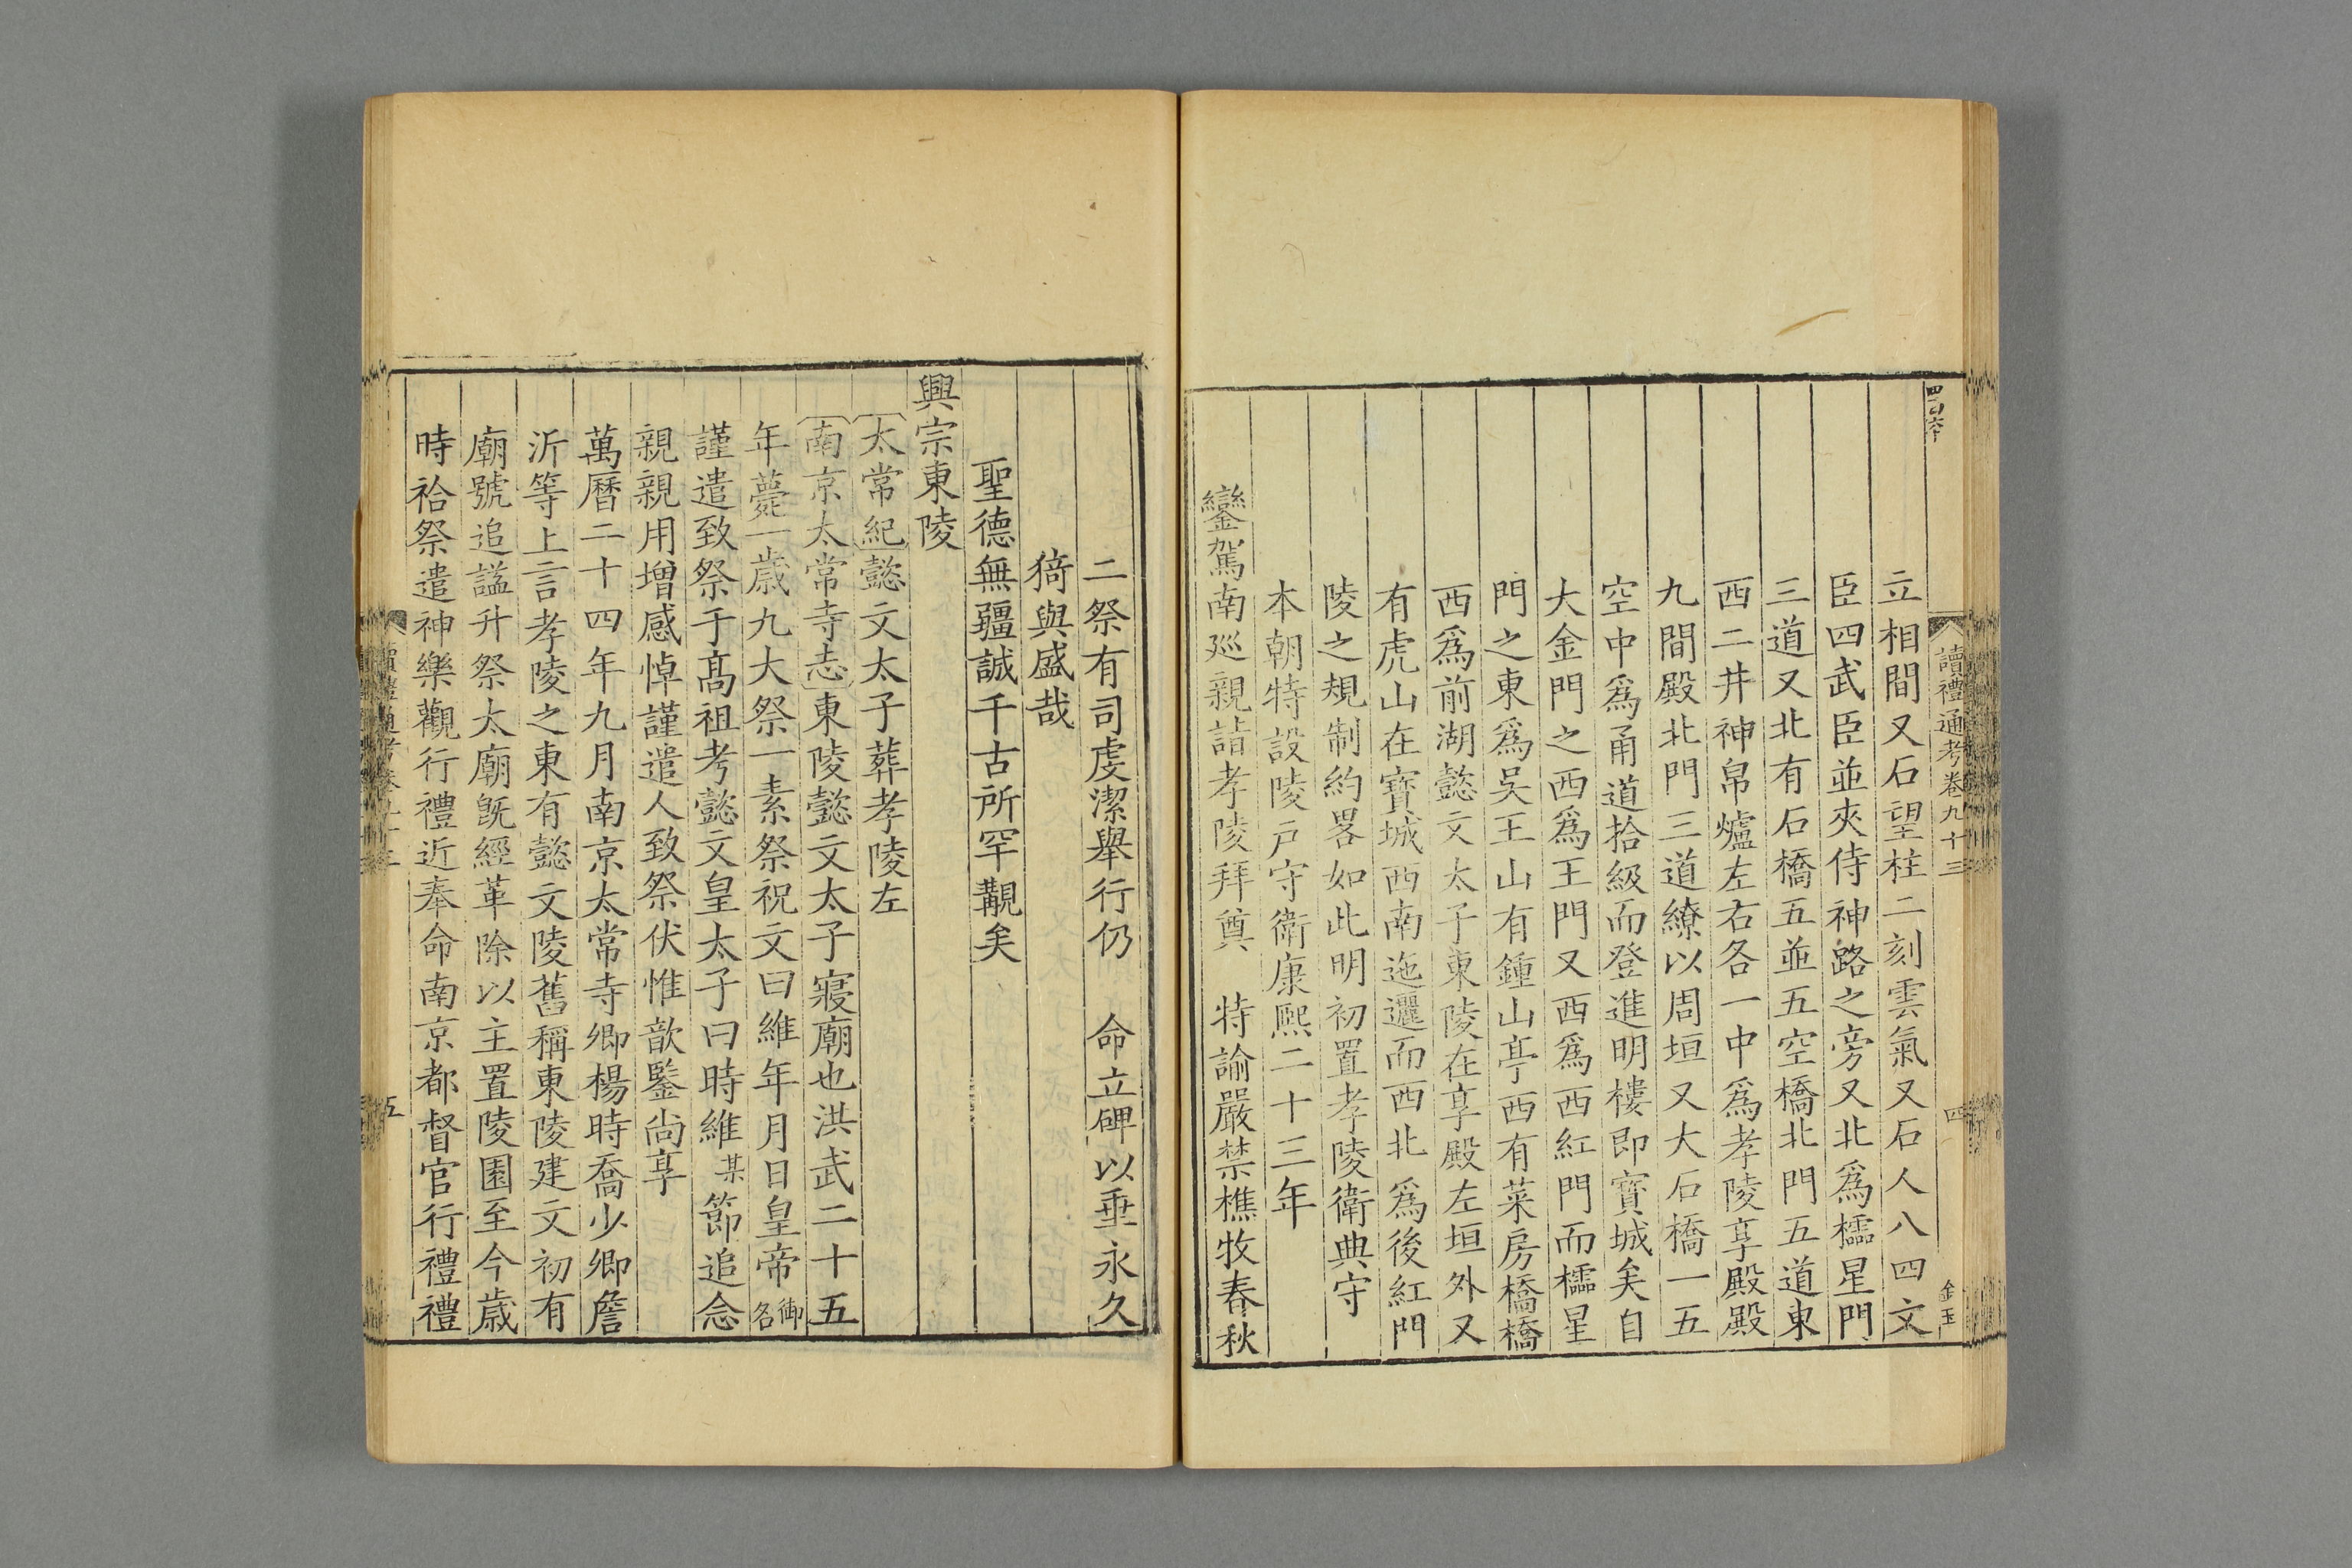 讀禮通考卷九十三 四 金玉
立相間又石望柱二刻雲氣又石人八四文
臣四武臣並夾侍神路之旁又北爲櫺星門
三道又北有石橋五並五空橋北門五道東
西二井神帛爐左右各一中爲孝陵享殿殿
九間殿北門三道繚以周垣又大石橋一五
空中爲甬道拾級而登進明樓即寶城矣自
大金門之西爲王門又西爲西紅門而櫺星
門之東爲吳王山有鍾山亭西有菜房橋橋
西爲前湖懿文太子東陵在享殿左垣外又
有虎山在寶城西南迤邐而西北爲後紅門
陵之規制約畧如此明初置孝陵衛典守
本朝特設陵戶守衛康熙二十三年
鑾駕南廵親詣孝陵拜奠 特諭嚴禁樵牧春秋
二祭有司虔潔舉行仍 命立碑以垂永久
猗與盛哉
聖德無疆誠千古所罕覯矣
興宗東陵
太常紀懿文太子葬孝陵左
南京太常寺志東陵懿文太子寢廟也洪武二十五
年薨一歲九大祭一素祭祝文曰維年月日皇帝御名
謹遣致祭于高祖考懿文皇太子曰時維某節追念
親親用增感悼謹遣人致祭伏惟歆鑒尚享
萬曆二十四年九月南京太常寺卿楊時喬少卿詹
沂等上言孝陵之東有懿文陵舊稱東陵建文初有
廟號追諡升祭太廟旣經革除以主置陵園至今歲
時祫祭遣神樂觀行禮近奉命南京都督官行禮禮
五